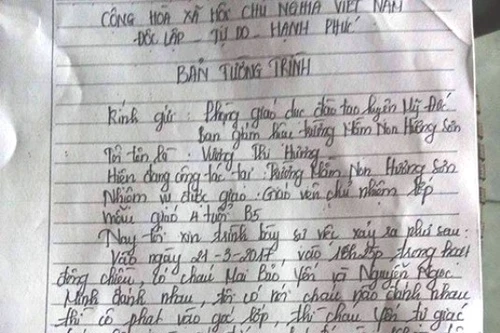 CỘNG HÒA XÃ HỘI CHỦ NGHĨA VIỆT NAM
ĐỘC LẬP - TỰ DO - HẠNH PHÚC
BẢN TƯỜNG TRÌNH
Kính gửi: Phòng giáo dục đào tạo huyện Mỹ Đức
Ban giám hiệu trường Mầm Non Hương Sơn
Tôi tên là: Vương Thị Hường
Hiện đang công tác tại: Trường Mầm Non Hương Sơn
Nhiệm vụ được giao: Giáo viên chủ nhiệm lớp
mẫu giáo 4 tuổi B5
Nay tôi xin trình bày sự việc xảy ra như sau:
Vào ngày 21-3-2017, vào trong hoạt
động chiều, có cháu Mai Bảo Yến và Nguyễn Ngọc
Minh đánh nhau, tôi có nói cháu nào đánh nhau
thì cô phạt vào góc lớp, thì cháu Yến tự giác